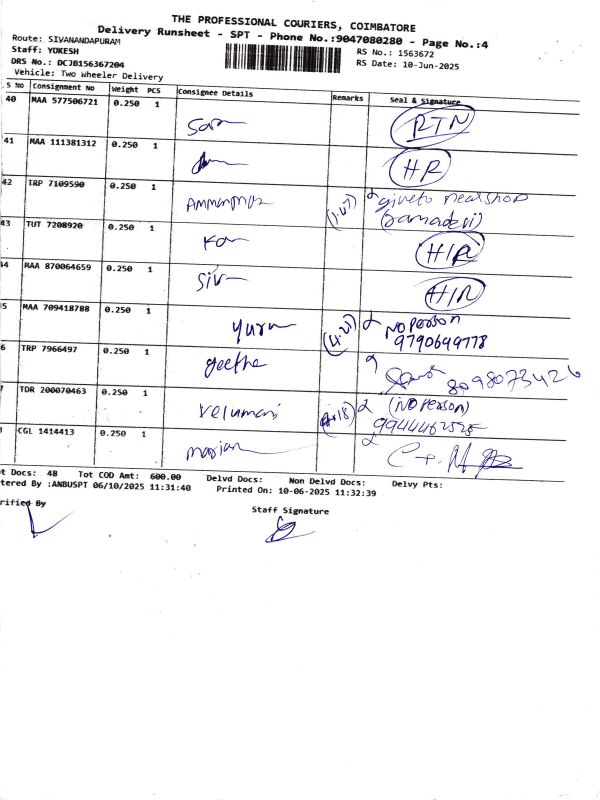 THE PROFESSIONAL COURIERS, COIMBATORE
Delivery Runsheet - SPT - Phone No.:9047080280 - Page No.:4
Route: SIVANANDAPURAM
Staff: YOKESH RS No.: 1563672
DRS No.: DCJB156367204 RS Date: 10-Jun-2025
Vehicle: Two Wheeler Delivery
S No Consignment No Weight PCS Consignee Details Remarks Seal & Signature
40 MAA 577506721 0.250 1 RTN
41 MAA 111381312 0.250 1 HR
42 TRP 7109590 0.250 1 (1.47) giveto near shop
(ramadevi)
43 TUT 7208920 0.250 1 HIR
44 MAA 870064659 0.250 1 Siv HIR
5 MAA 709418788 0.250 1 No person
9790699778
6 TRP 7966497 0.250 1 geetha 8098073426
7 TDR 200070463 0.250 1 velumani (No person)
CGL 1414413 0.250 1 marian
ot Docs: 48 Tot COD Amt: 600.00 Delvd Docs: Non Delvd Docs: Delvy Pts:
tered By :ANBUSPT 06/10/2025 11:31:40 Printed On: 10-06-2025 11:32:39
rified By Staff Signature